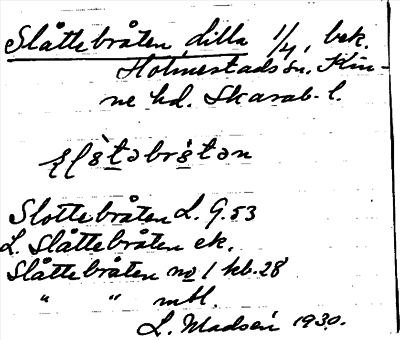 Slåttebråten, dilla 1/4, bek.
Holmestads sn. Kin-
ne hd. Skarab. l.
Slottebråten L. G. 53
L. Slåttebråten ek.
Slåttebråten no 1 kb. 28
" " mbl.
L. Madsén 1930.